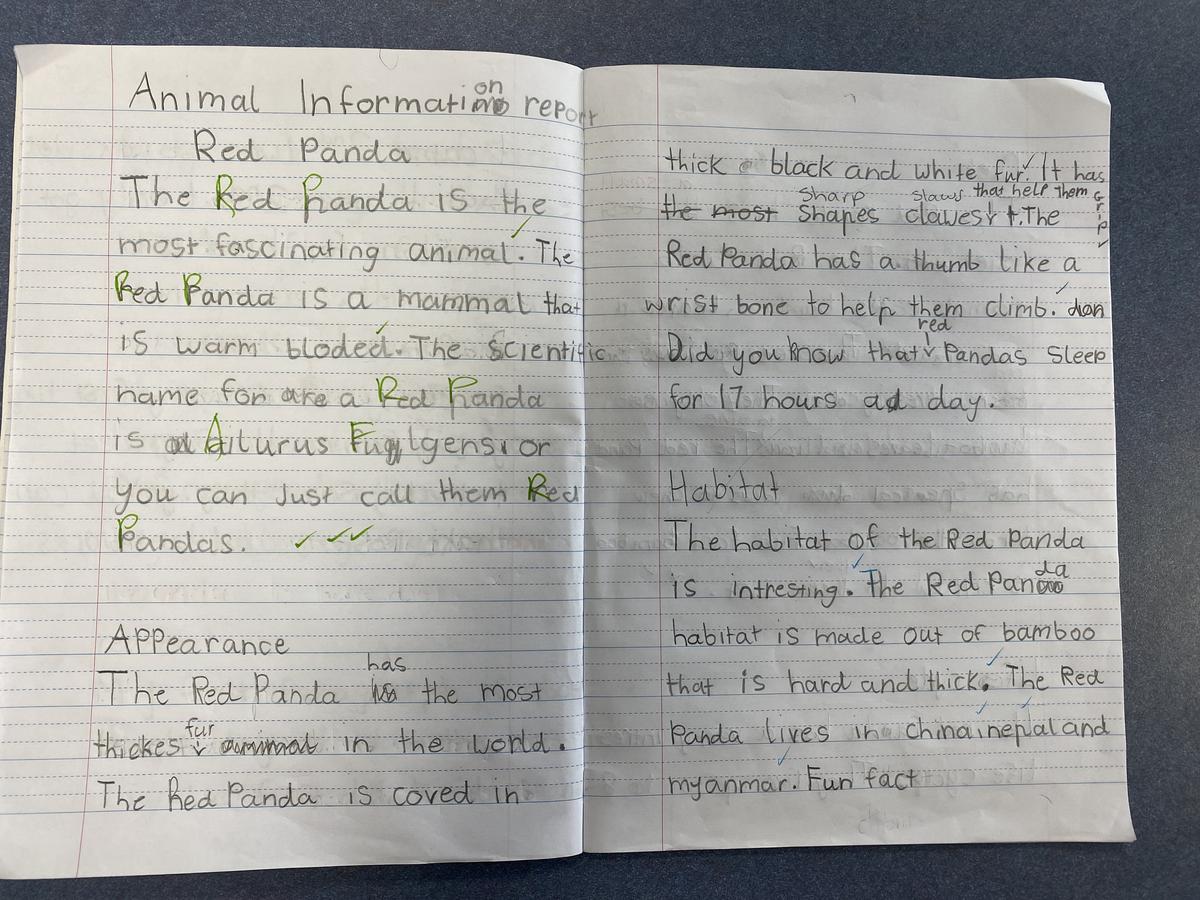 Animal Information report
Red Panda
The Red Panda is the
most fascinating animal. The
Red Panda is a mammal that
is warm bloded. The scientific
name for are a Red Panda
is Ailurus Fuglgens, or
you can just call them Red
Pandas.
Appearance
has
The Red Panda the most
fur
thickes animal in the world.
The Red Panda is coved in
thick black and white fur. It has
Sharp slaws that help them grip
the most Shapes clawes. The
Red Panda has a thumb like a
wrist bone to help them climb.
red
Did you know that Pandas sleep
for 17 hours ad day.
Habitat
The habitat of the Red Panda
is intresting. The Red Panda
habitat is made out of bamboo
that is hard and thick. The Red
Panda lives in china, nepal and
myanmar. Fun fact